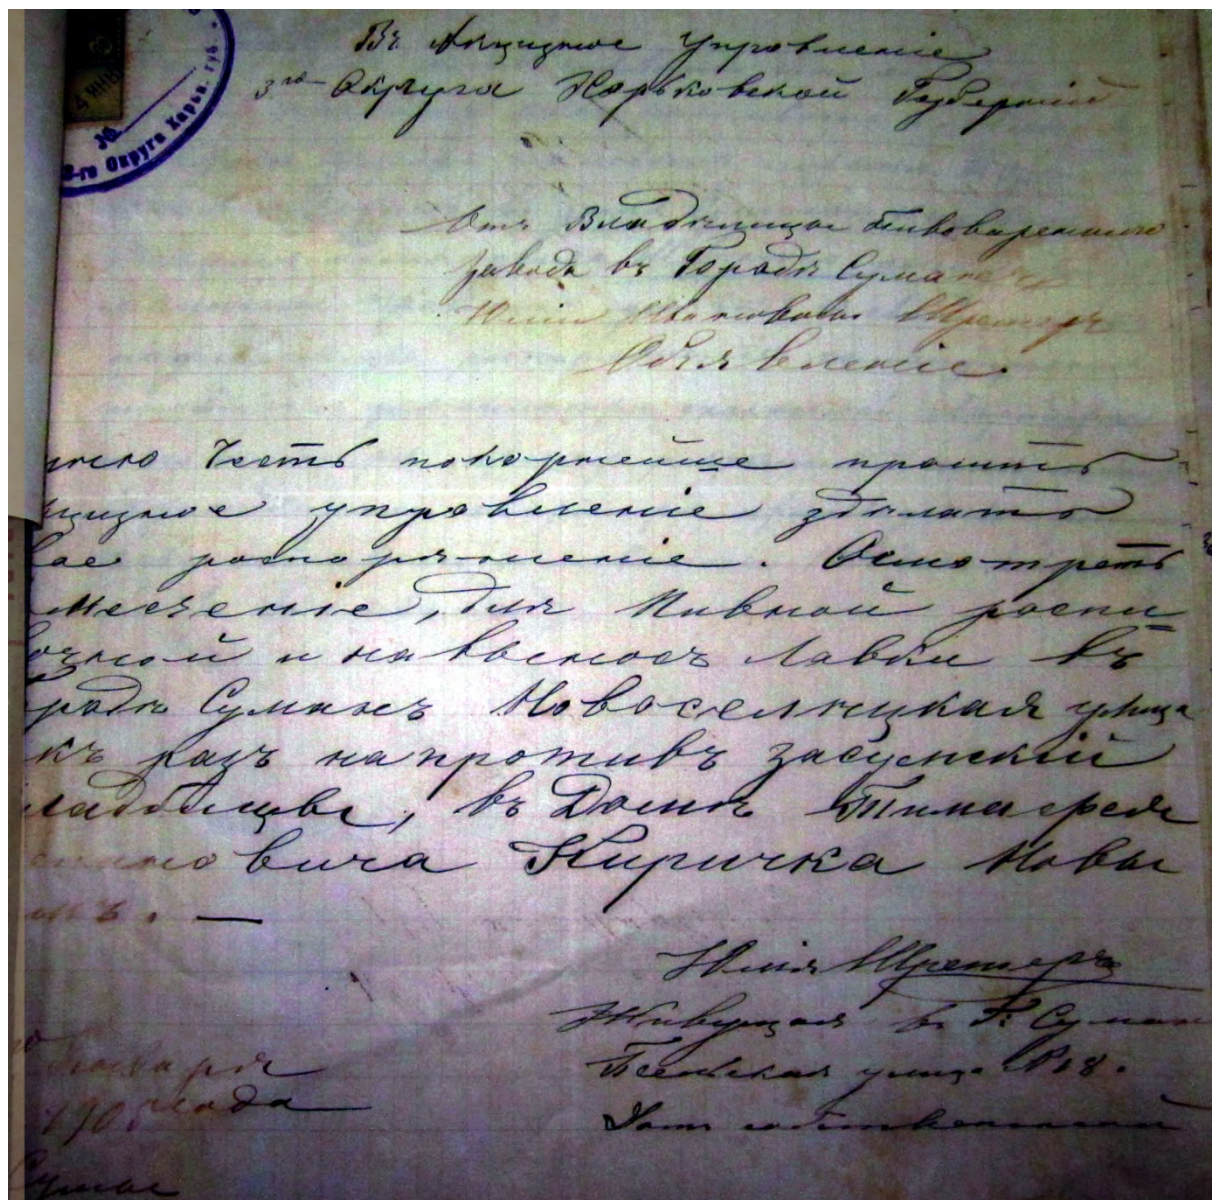 4 ЯНВ
№
3-го Округа Харьк. губ.
Въ Акцизное Управленіе
3го Округа Харьковской Губерніи
Отъ Владѣлицы Пивовареннаго
завода въ Городѣ Сумахъ
Юліи Ивановны Шрейтеръ
Объявленіе.
Честь покорнейше просить
управленіе здѣлать
роспоряженіе. Осмотреть
для Пивной роспи
и на выносъ Лавки въ
Сумахъ Новоселицкая улица
къ разъ напротивъ засумскій
въ Домѣ Тимафея
овича Киричка Новы
Юлія Шрейтеръ
Живущая в Г. Сумах
Псельская улица №8.
Домъ собственный
Января
190 года
Сумы